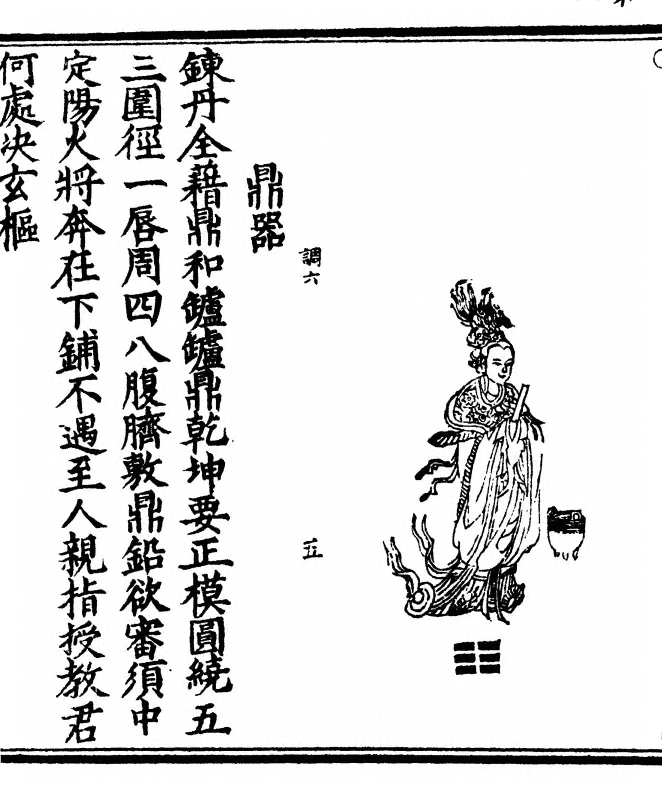 調六 五
鼎器
鍊丹全藉鼎和鑪鑪鼎乾坤要正模圓繞五
三圍徑一唇周四八腹臍敷鼎鉛欲審須中
定陽火將奔在下鋪不遇至人親指授教君
何處决玄樞